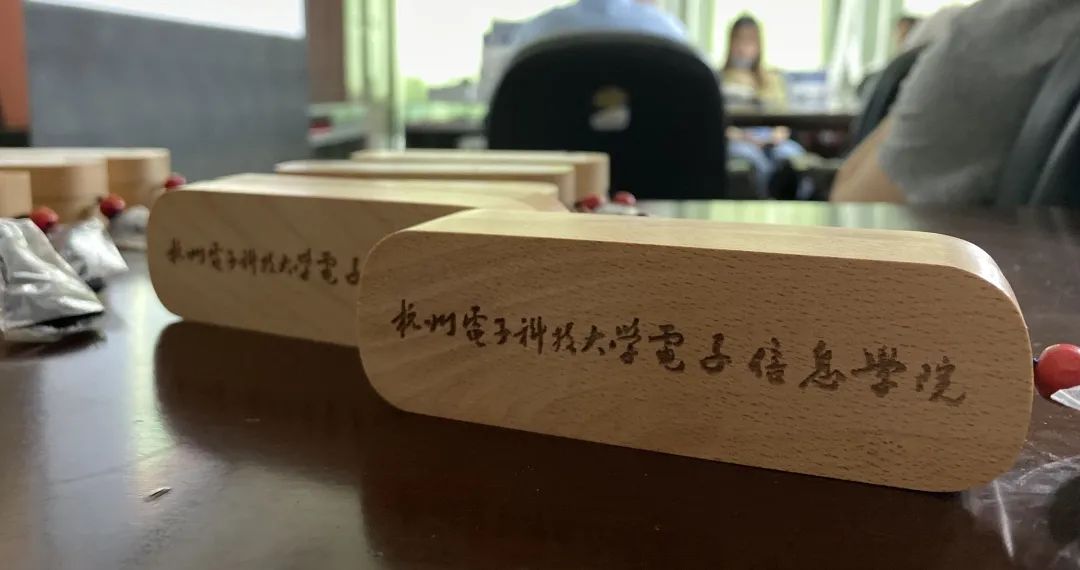 杭州電子科技大学電子
杭州電子科技大学電子信息學院